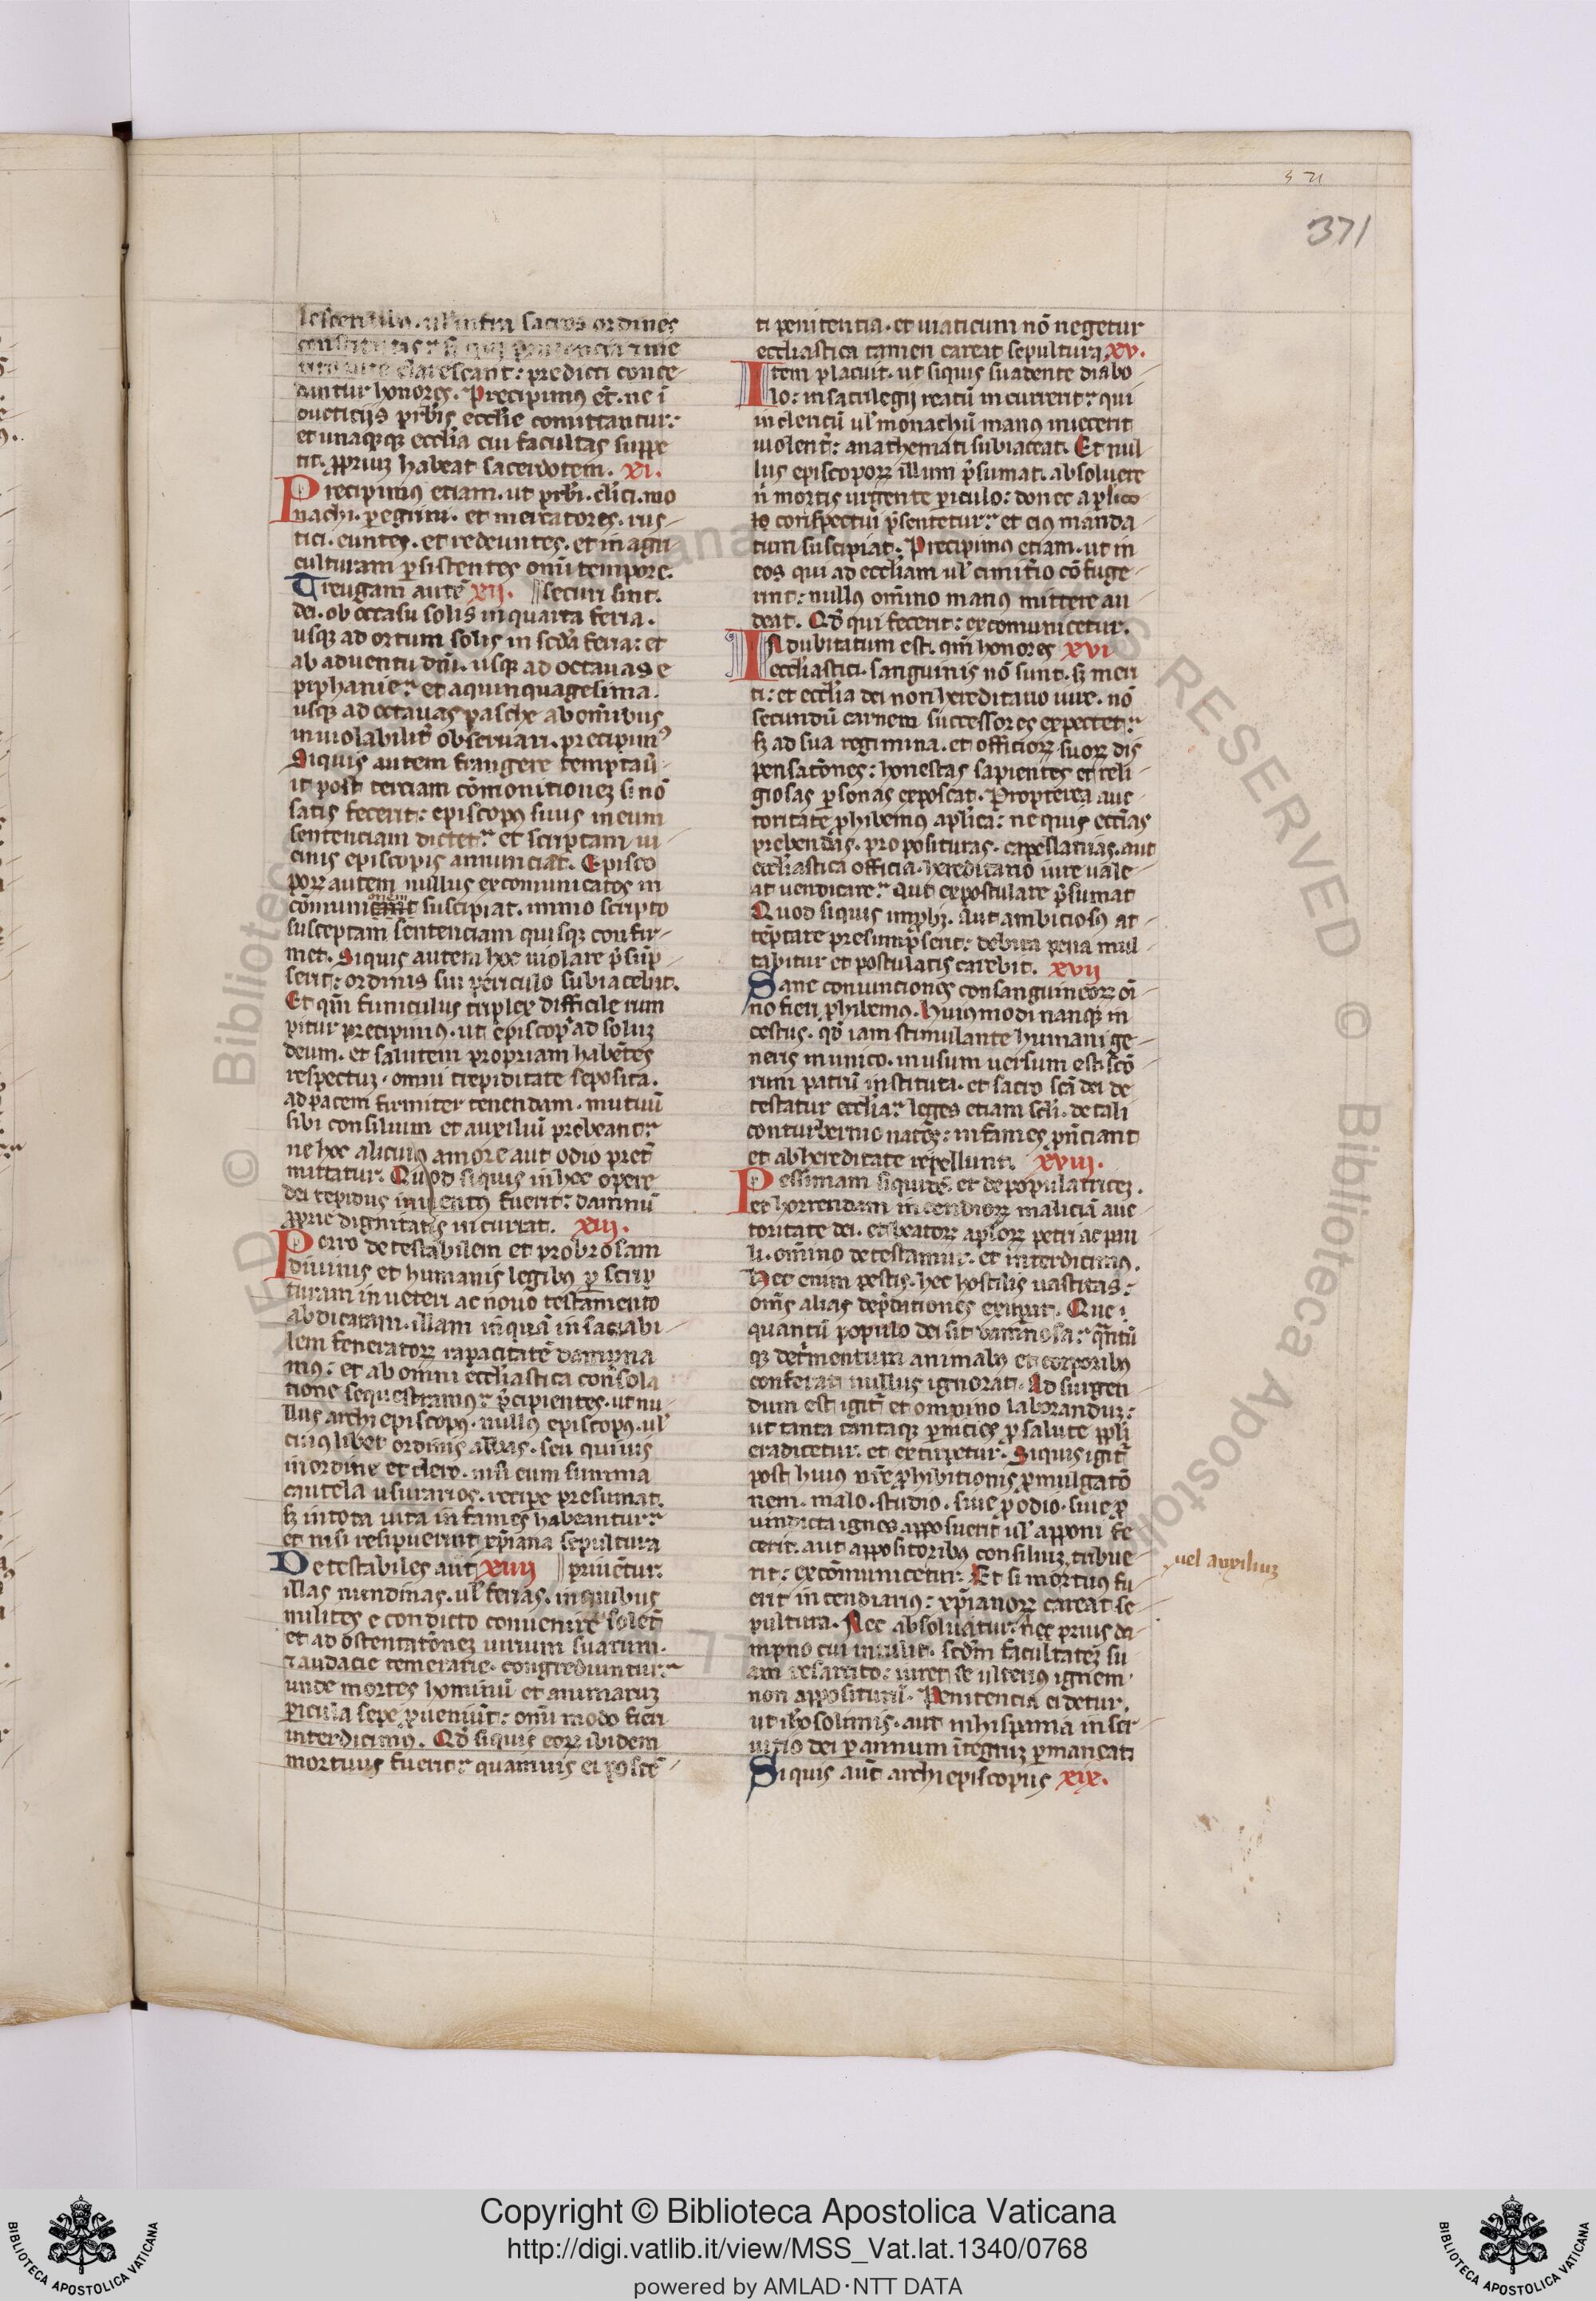 321
371
lescentulos. ul' infra sacros ordines
constitutis
clarescant: predicti conce-
dantur honores. Precipimus et̄. ne ī
ducticijs p̄rbr̄is ecclīe comittantur:
et unaqueqꝫ ecclīa cui facultas suppe
tit. ꝓpriuꝫ habeat sacerdotem. xi.
Precipimus etiam. ut p̄rbr̄i. cl̄ici. mo
nachi. ꝑegrini. et mercatores. rus-
tici. euntes. et redeuntes. et in agri
culturam ꝑsistentes omī tempore.
Treugam autē xij. securi sint.
dei. ob occasu solis in quarta feria.
usqꝫ ad ortum solis in scd̄a feria: et
ab aduentu dn̄i. usqꝫ ad octauas e
piphanie: et a quinquagesima.
usqꝫ ad octauas pasche ab omībus
inuiolabilit̄ obseruari. precipimꝰ
Siquis autem frangere temptau̅-
it post terciam cōmonitioneꝫ si nō
satis fecerit: episcopꝰ suus in eum
sentenciam dictet: et scriptam ui-
cinis episcopis annunciat. Episco
poꝝ autem nullus excomunicatos in
cōmunionem suscipiat. immo scripto
susceptam sentenciam quisqꝫ confir-
met. Siquis autem hoc uiolare p̄sūp
serit: ordinis sui periculo subiacebit.
Et qm̄ funiculus triplex difficile rum
pitur precipimus. ut episcopi ad soluꝫ
deum. et salutem propriam habētes
respectuꝫ. omni trepiditate seposita.
ad pacem firmiter tenendam. mutuū
sibi consilium et auxiliū prebeant:
ne hoc alicuiꝰ amore aut odio pret̄
mittatur. Quod siquis in hoc opere
dei tepidus inuentꝰ fuerit: dāmnū
ꝓprie dignitatis incurrat. xiij.
Porro detestabilem et probrosam
diuinis et humanis legibꝰ ꝑ scrip
turam in ueteri ac nouo testamento
abdicatam. illam inquā insaciabi-
lem feneratoꝝ rapacitatē dampna
mꝰ: et ab omni eccl̄iastica consola
tione sequestramus: p̄cipientes. ut nu-
llus archiepiscopꝰ. nullꝰ episcopꝰ. ul'
cuiꝰlibet ordinis abbas. seu quiuis
in ordine et clero. nisi cum summa
cautela usurarios. recipe presumat.
sꝫ in tota uita infames habeantur:
et nisi resipuerint xp̄iana sepultura
Detestabiles aut̄ xiiij priuētur:
illas nundinas. ul' ferias. in quibus
milites e condicto conuenire solet̄
et ad ostentatōneꝫ uirium suarum.
⁊ audacie temerarie. congrediuntur:
unde mortes hominū et animaruꝫ
ꝑicula sepe ꝓueniūt: omī modo fieri
interdicimꝰ. Qd̄ siquis eoꝝ ibidem
mortuus fuerit: quamuis ei poscē-
ti penitentia. et uiaticum nō negetur
eccl̄iastica tamen careat sepultura xv.
Item placuit. ut siquis suadente diabo-
lo: in sacrilegij reatū incurrerit: qui
in clericū ul' monachū manꝰ iniecerit
uiolent̄: anathemati subiaceat. Et nul-
lus episcopoꝝ illum p̄sumat. absoluere
n̄ mortis urgente ꝑiculo: donec aplico
to conspectui p̄sentetur: et eiꝰ manda-
tum suscipiat. Precipimꝰ etiam. ut in
eos qui ad eccl̄iam ul' cimit̄io cōfuge-
rint: nullꝰ om̄ino manꝰ mittere au-
deat. Qd̄ qui fecerit: excomunicetur.
INdubitatum est. qm̄ honores xvi
eccl̄iastici. sanguinis nō sunt. sꝫ meri
ti: et eccl̄ia dei non hereditauo iure. nō
secundū carnem successores expectet:
sꝫ ad sua regimina. et officioꝝ suoꝝ dis
pensatōnes: honestas sapientes et reli-
giosas ꝑsonas exposcat. Propterea auc-
toritate ꝓhibemus ap̄lica: ne quis eccl̄ias
prebendas. preposituras. capellanias. aut
eccl̄iastica officia. hereditario iure uale-
at uendicare: Aut expostulare p̄sumat
Quod siquis imꝓbꝰ. Aut ambiciosꝰ at-
tēptare presumpserit: debita pena mul-
tabitur et postulatis carebit. xvij
Sane coniunctiones consanguineoꝝ oī-
no fieri ꝓhibemꝰ. Huiusmodi nanqꝫ in
cestus. qd̄ iam stimulante humani ge-
neris inimico. in usum uersum est. scō
rum patrū instituta. et sacro scā dei de
testatur eccl̄ia: leges etiam scl̄i. de tali
conturbernio natos: infames p̄n̄ciant
et ab hereditate repellunt. xviij.
Pessimam siquidē. et depopulatriceꝫ.
et horrendam incendioꝝ maliciā auc-
toritate dei. et beatoꝝ ap̄loꝝ petri ac pau
li. om̄ino detestamur. et interdicimꝰ.
Hec enim pestis. hec hostilis uastitas:
om̄s alias dep̄dationes exupat. Que:
quantū populo dei sit damnosa: qn̄tū
qꝫ det̄mentum animabꝰ et corporibꝰ
conferat. nullus ignorat. Adsurgen-
dum est igit̄ et ompino laboranduꝫ:
ut tanta tantaqꝫ ꝑnicies ꝓ salute ppl̄i
eradicetur. et extirpetur. Siquis igit̄
post huiꝰ nr̄e ꝓhibitionis ꝓmulgatō
nem. malo. studio. siue ꝓ odio. siue ꝓ
uindicta ignes apposuerit ul' apponi fe-
cerit. aut appositoribꝰ consiliuꝫ tribue-
rit: excōmunicetur: Et si mortuꝰ fu-
erit incendiarius: xp̄ianoꝝ careat se-
pultura. Nec absoluatur: nec prius da-
mpno cui intulit. scd̄m facultateꝫ su-
am resarcito: iuret se ulteriꝰ ignem.
non appositurū. Penitencia ei detur.
ut ih̄osolimis. aut in hispania in ser-
uicio dei ꝑ annum ītegruꝫ ꝑmaneat.
Siquis aut̄ archiepiscopus xix.
uel auxiliuꝫ
Copyright © Biblioteca Apostolica Vaticana
http://digi.vatlib.it/view/MSS_Vat.lat.1340/0768
powered by AMLAD·NTT DATA
BIBLIOTECA APOSTOLICA VATICANA
BIBLIOTECA APOSTOLICA VATICANA